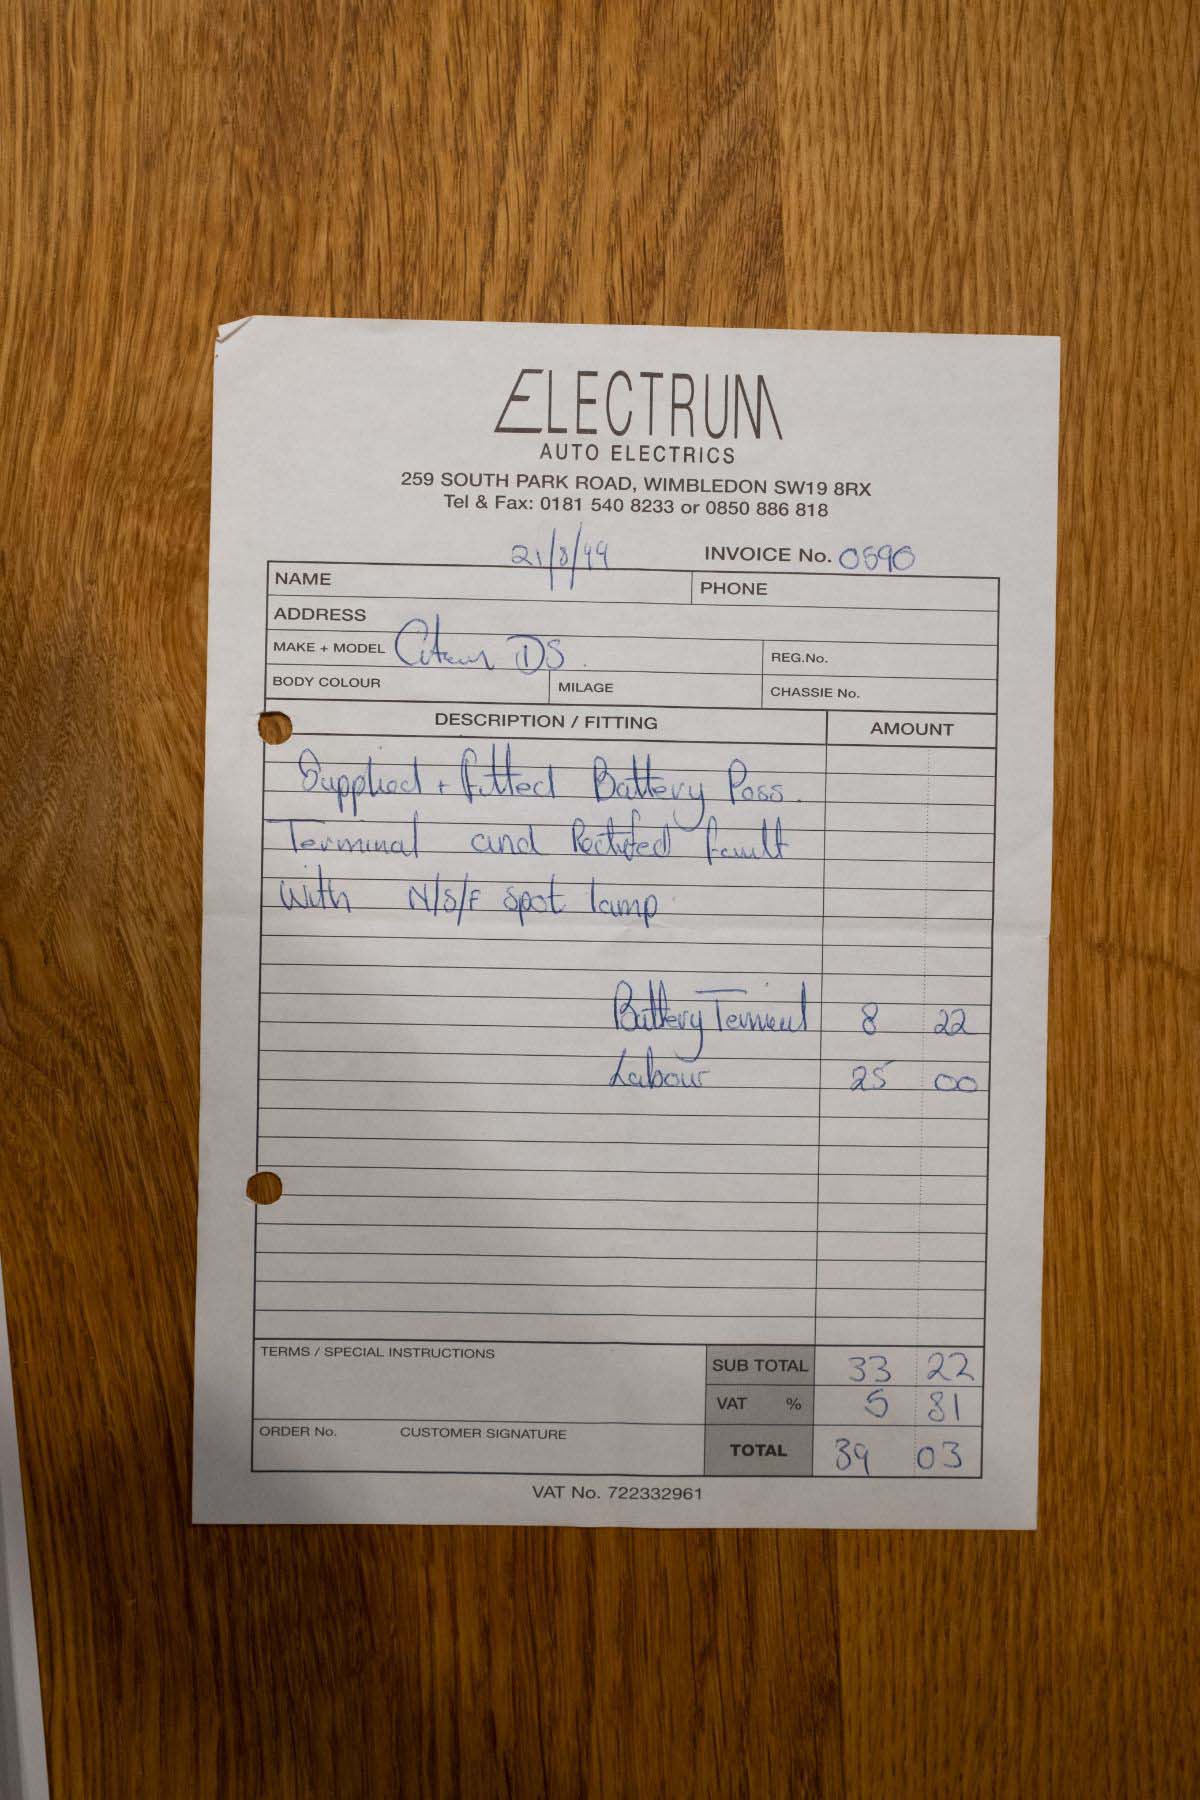 ELECTRUM
AUTO ELECTRICS
259 SOUTH PARK ROAD, WIMBLEDON SW19 8RX
Tel & Fax: 0181 540 8233 or 0850 886 818
21/8/99 INVOICE No. 0590
NAME PHONE
ADDRESS
MAKE + MODEL Citroen DS. REG.No.
BODY COLOUR MILAGE CHASSIE No.
DESCRIPTION / FITTING AMOUNT
Supplied + fitted Battery Poss.
Terminal and Rectified fault
With N/S/F spot lamp
Battery Terminal 8 22
Labour 25 00
TERMS / SPECIAL INSTRUCTIONS SUB TOTAL 33 22
VAT % 5 81
ORDER No. CUSTOMER SIGNATURE TOTAL 39 03
VAT No. 722332961